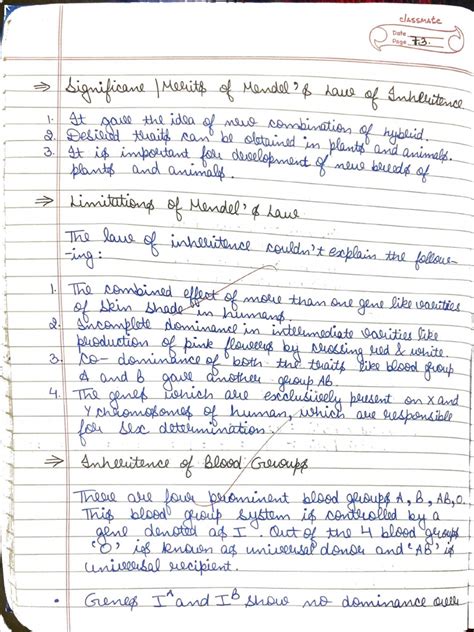 classmate
Date
Page 73.
⇒ Significane / Merits of Mendel's Law of Inheritence
1. It gave the idea of new combination of hybrid.
2. Desired traits can be obtained in plants and animals.
3. It is important for development of new breeds of
plants and animals.
⇒ Limitations of Mendel's Law
The law of inheritence couldn't explain the follow-
-ing:
1. The combined effect of more than one gene like varities
of skin shade in humans.
2. Incomplete dominance in intermediate varities like
production of pink flowers by crossing red & white.
3. Co-dominance of both the traits like blood group
A and B gave another group AB.
4. The genes which are exclusively present on X and
Y chromosomes of human, which are responsible
for sex determination.
⇒ Inheritence of Blood Groups
There are four prominent blood groups A, B, AB, O.
This blood group system is controlled by a
gene denoted as I. Out of the 4 blood groups
'O' is known as universal donor and 'AB' is
universal recipient.
• Genes I^A and I^B show no dominance over